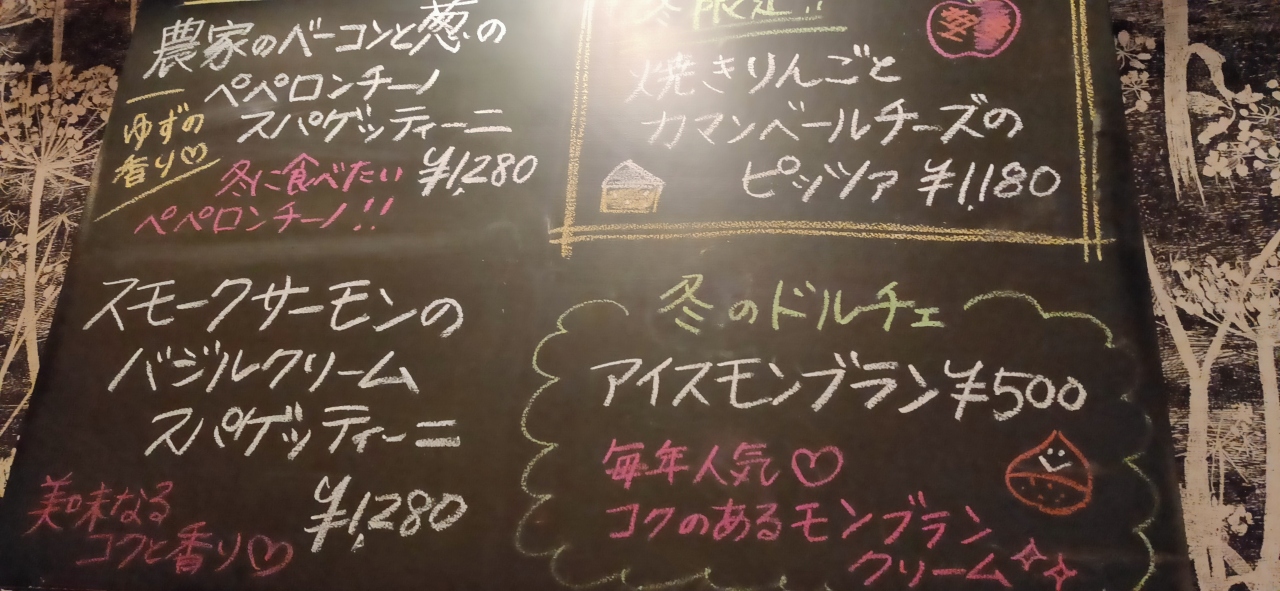 農家のベーコンと葱の
ペペロンチーノ
スパゲッティーニ
ゆずの
香り♡
¥1,280
冬に食べたい
ペペロンチーノ!!
冬限定!!
焼きりんごと
カマンベールチーズの
ピッツァ ¥1,180
スモークサーモンの
バジルクリーム
スパゲッティーニ
¥1,280
美味なる
コクと香り♡
冬のドルチェ
アイスモンブラン ¥500
毎年人気♡
コクのあるモンブラン
クリーム